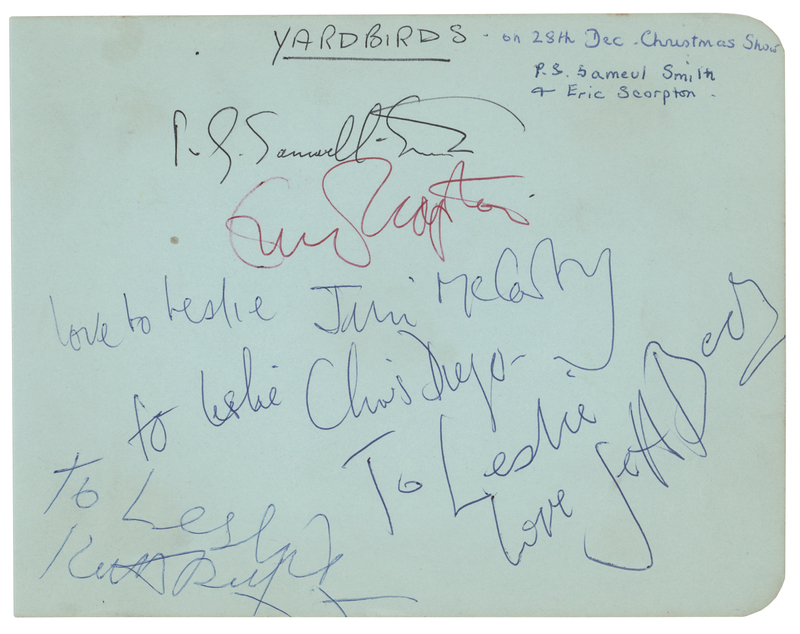 YARDBIRDS - on 28th Dec. Christmas Show
P.S. Sameul Smith
+ Eric Scorpton.
P. S. Samwell-Smith
Eric Scorpton
love to Leslie Jim McCarty
to Leslie Chris Dreja
To Leslie
love Jeff Beck
To Leslie
Keith Relf